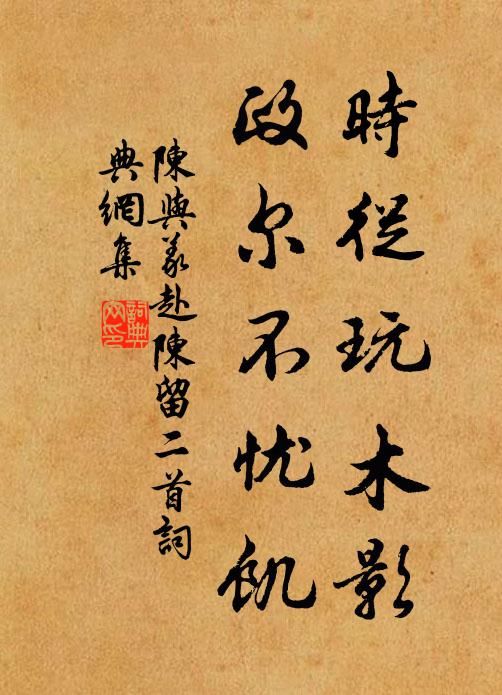 時從玩木影
政尔不忧飢
陳與義赴陳留二首詞
典網集
詞典
网印